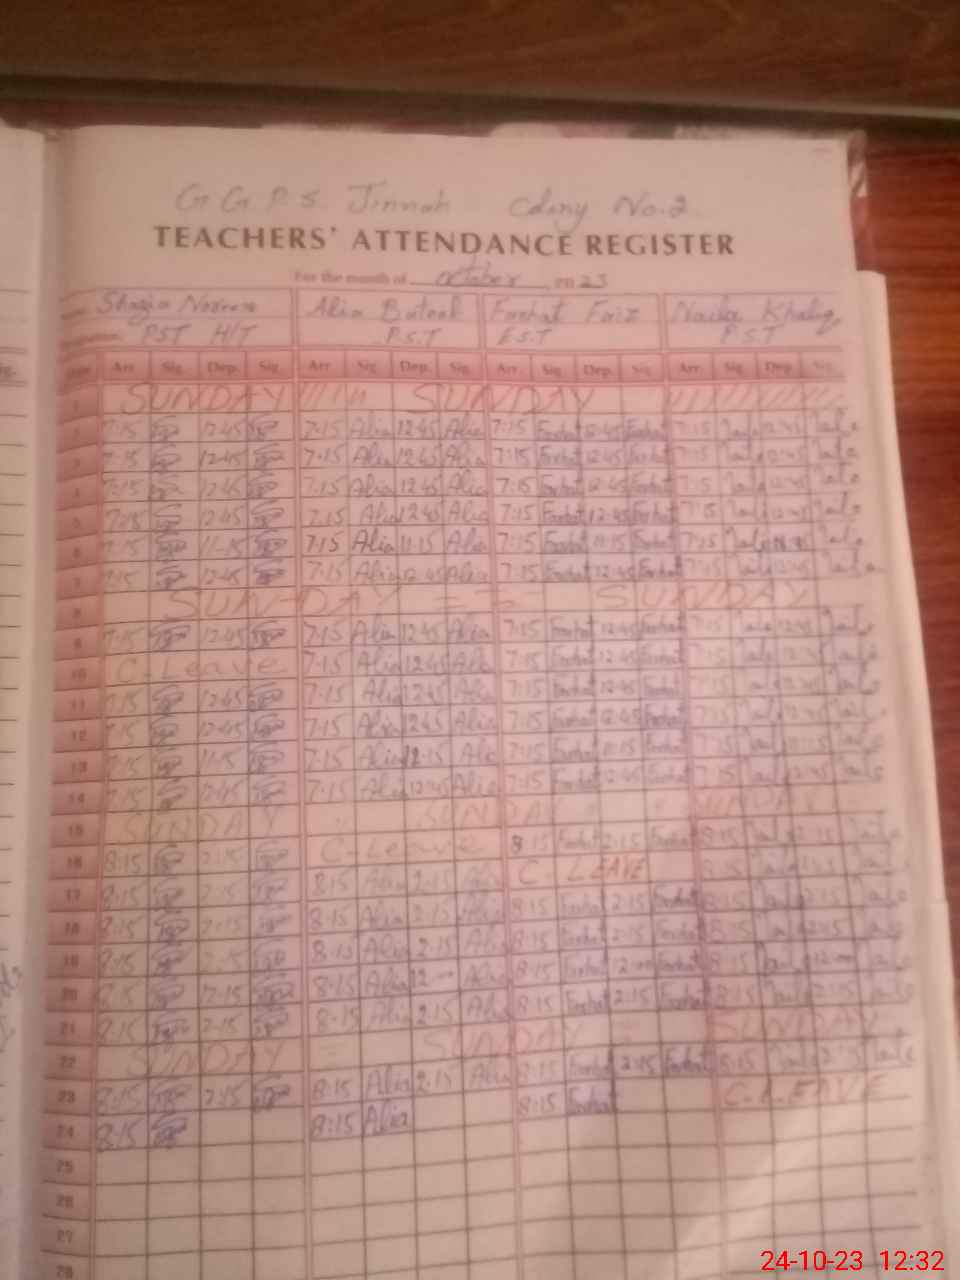 G.G.P.S. Jinnah Colony No.2
TEACHERS' ATTENDANCE REGISTER
For the month of October 2023
Shazia Noreen Alia Batool Farhat Faiz Naila Khaliq
PST H/T P.S.T E.S.T P.S.T
Arr. Sig. Dep. Sig. Arr. Sig. Dep. Sig. Arr. Sig. Dep. Sig. Arr. Sig. Dep. Sig.
1 SUNDAY SUNDAY
7:15 12:45 7:15 Alia 12:45 Alia 7:15 Farhat 12:45 Farhat 7:15 Naila 12:45 Naila
7:15 12:45 7:15 Alia 12:45 Alia 7:15 Farhat 12:45 Farhat 7:15 Naila 12:45 Naila
4 7:15 12:45 7:15 Alia 12:45 Alia 7:15 Farhat 12:45 Farhat 7:15 Naila 12:45 Naila
5 7:15 12:45 7:15 Alia 12:45 Alia 7:15 Farhat 12:45 Farhat 7:15 Naila 12:45 Naila
6 7:15 11-15 7:15 Alia 11:15 Alia 7:15 Farhat 11:15 Farhat 7:15 Naila Naila
7 7:15 12:45 7:15 Alia 12:45 Alia 7:15 Farhat 12:45 Farhat 7:15 Naila 12:45 Naila
8 SUNDAY SUNDAY
9 7:15 12:45 7:15 Alia 12:45 Alia 7:15 Farhat 12:45 Farhat 7:15 Naila 12:45 Naila
10 C. Leave 7:15 Alia 12:45 Alia 7:15 Farhat 12:45 Farhat 7:15 Naila 12:45 Naila
11 7:15 12:45 7:15 Alia 12:45 Alia 7:15 Farhat 12:45 Farhat 7:15 Naila 12:45 Naila
12 7:15 12:45 7:15 Alia 12:45 Alia 7:15 Farhat 12:45 Farhat 7:15 Naila 12:45 Naila
13 7:15 11-15 7:15 Alia 12:15 Alia 7:15 Farhat 11:15 Farhat 7:15 Naila 11:15 Naila
14 7:15 12:45 7:15 Alia 12:45 Alia 7:15 Farhat 12:45 Farhat 7:15 Naila 12:45 Naila
15 SUNDAY SUNDAY SUNDAY
16 8:15 2:15 C-Leave 8:15 Farhat 2:15 Farhat 8:15 Naila 2:15 Naila
17 8:15 2:15 8:15 Alia 2:15 Alia C. LEAVE 8:15 Naila 2:15 Naila
18 8:15 2:15 8:15 Alia 2:15 Alia 8:15 Farhat 2:15 Farhat 8:15 Naila 2:15 Naila
19 8:15 2:15 8:15 Alia 2:15 Alia 8:15 Farhat 2:15 Farhat 8:15 Naila 2:15 Naila
20 8:15 8:15 Alia 12 Alia 8:15 Farhat 12:00 Farhat 8:15 Naila 12:00 Naila
21 8:15 2:15 8:15 Alia 2:15 Alia 8:15 Farhat 2:15 Farhat 8:15 Naila 2:15 Naila
22 SUNDAY SUNDAY SUNDAY
23 8:15 2:15 8:15 Alia 2:15 Alia 8:15 Farhat 2:15 Farhat 8:15 Naila 2:15 Naila
24 8:15 8:15 Alia 8:15 Farhat C. LEAVE
25
26
27
28
24-10-23 12:32